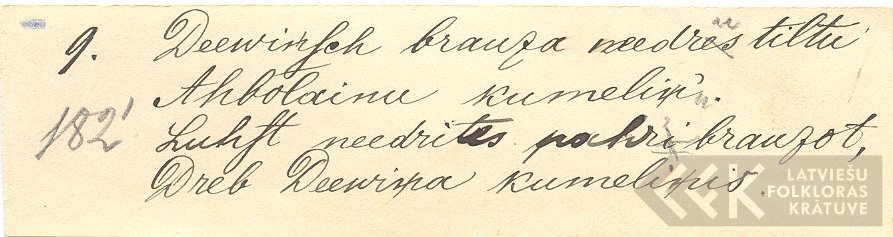 9. Deewiņsch brauza needrēs tiltu
Ahbolainu kumeliņ'.
182 Luhst needrites pahri brauzot,
Dreb Deewiņa kumeliņis.
LATVIEŠU
FOLKLORAS
KRĀTUVE